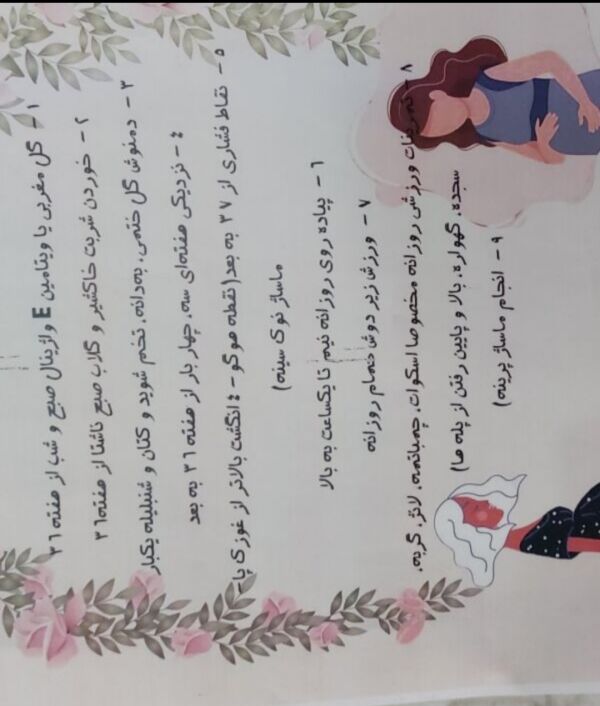 ۱ - گل مغربی یا ویتامین E واژینال صبح و شب از هفته ۳۶
۲ - خوردن شربت خاکشیر و گلاب صبح ناشتا از هفته ۳۶
۳ - دمنوش گل ختمی، به دانه، تخم شوید و کتان و شنبلیله یکبار
۴ - نزدیکی هفته‌ای سه، چهار بار از هفته ۳۶ به بعد
۵ - نقاط فشاری از ۳۷ به بعد (نقطه هوگو - ۴ انگشت بالاتر از غوزک پا -
ماساژ نوک سینه)
۶ - پیاده روی روزانه نیم تا یکساعت به بالا
۷ - ورزش زیر دوش حمام روزانه
۸ - تمرینات ورزشی روزانه مخصوصا اسکوات، چمباتمه، لانژ، گربه،
سجده، گهواره، بالا و پایین رفتن از پله ها)
۹ - انجام ماساژ پرینه)